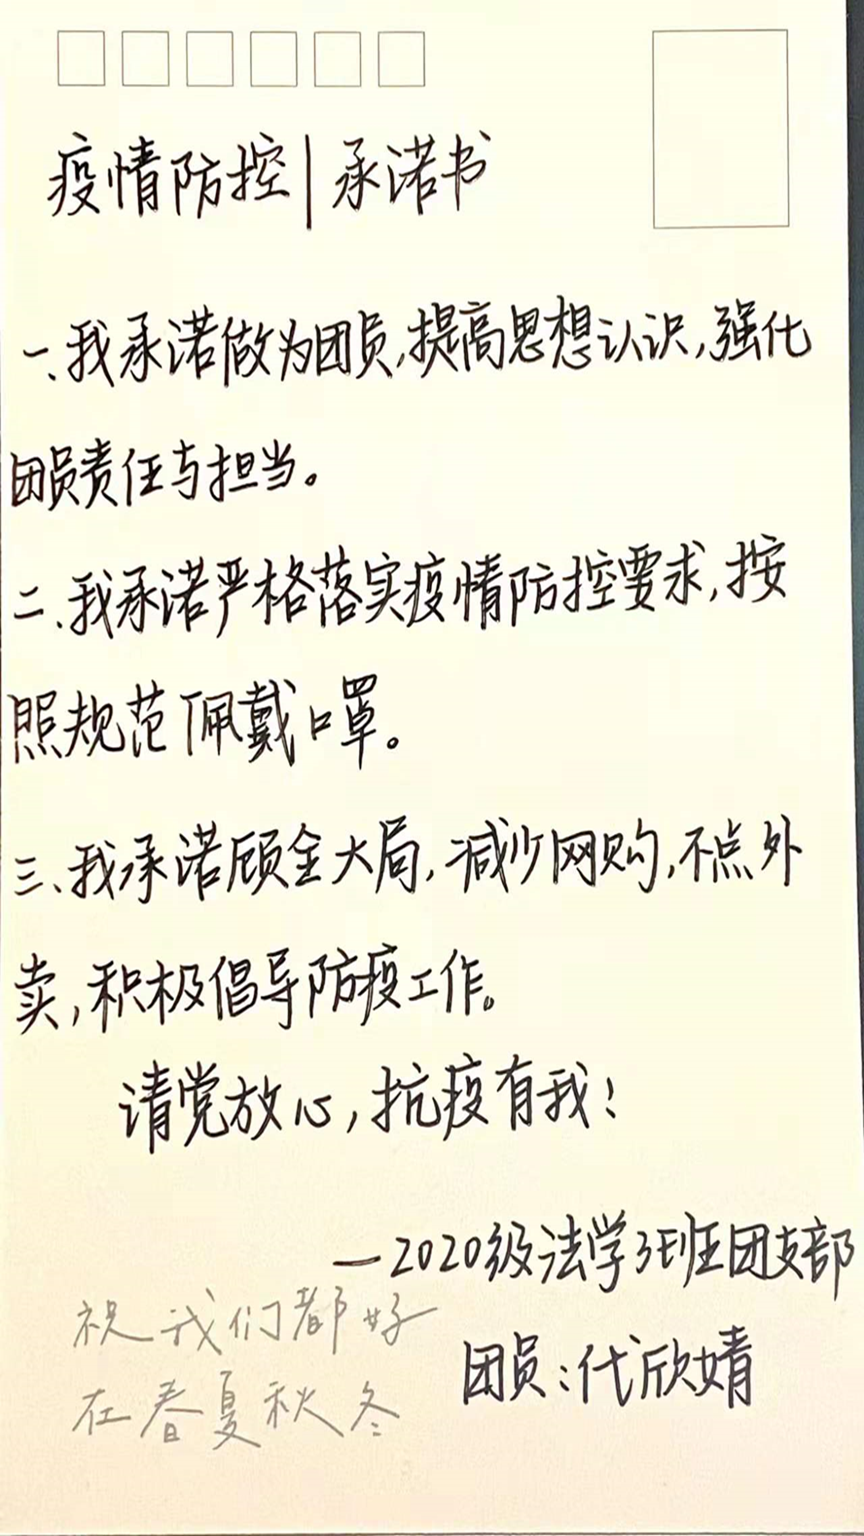 疫情防控|承诺书
一、我承诺做为团员,提高思想认识,强化
团员责任与担当。
二、我承诺严格落实疫情防控要求,按
照规范佩戴口罩。
三、我承诺顾全大局,减少网购,不点外
卖,积极倡导防疫工作。
请党放心,抗疫有我!
—2020级法学3班团支部
团员:代欣婧
祝我们都好
在春夏秋冬